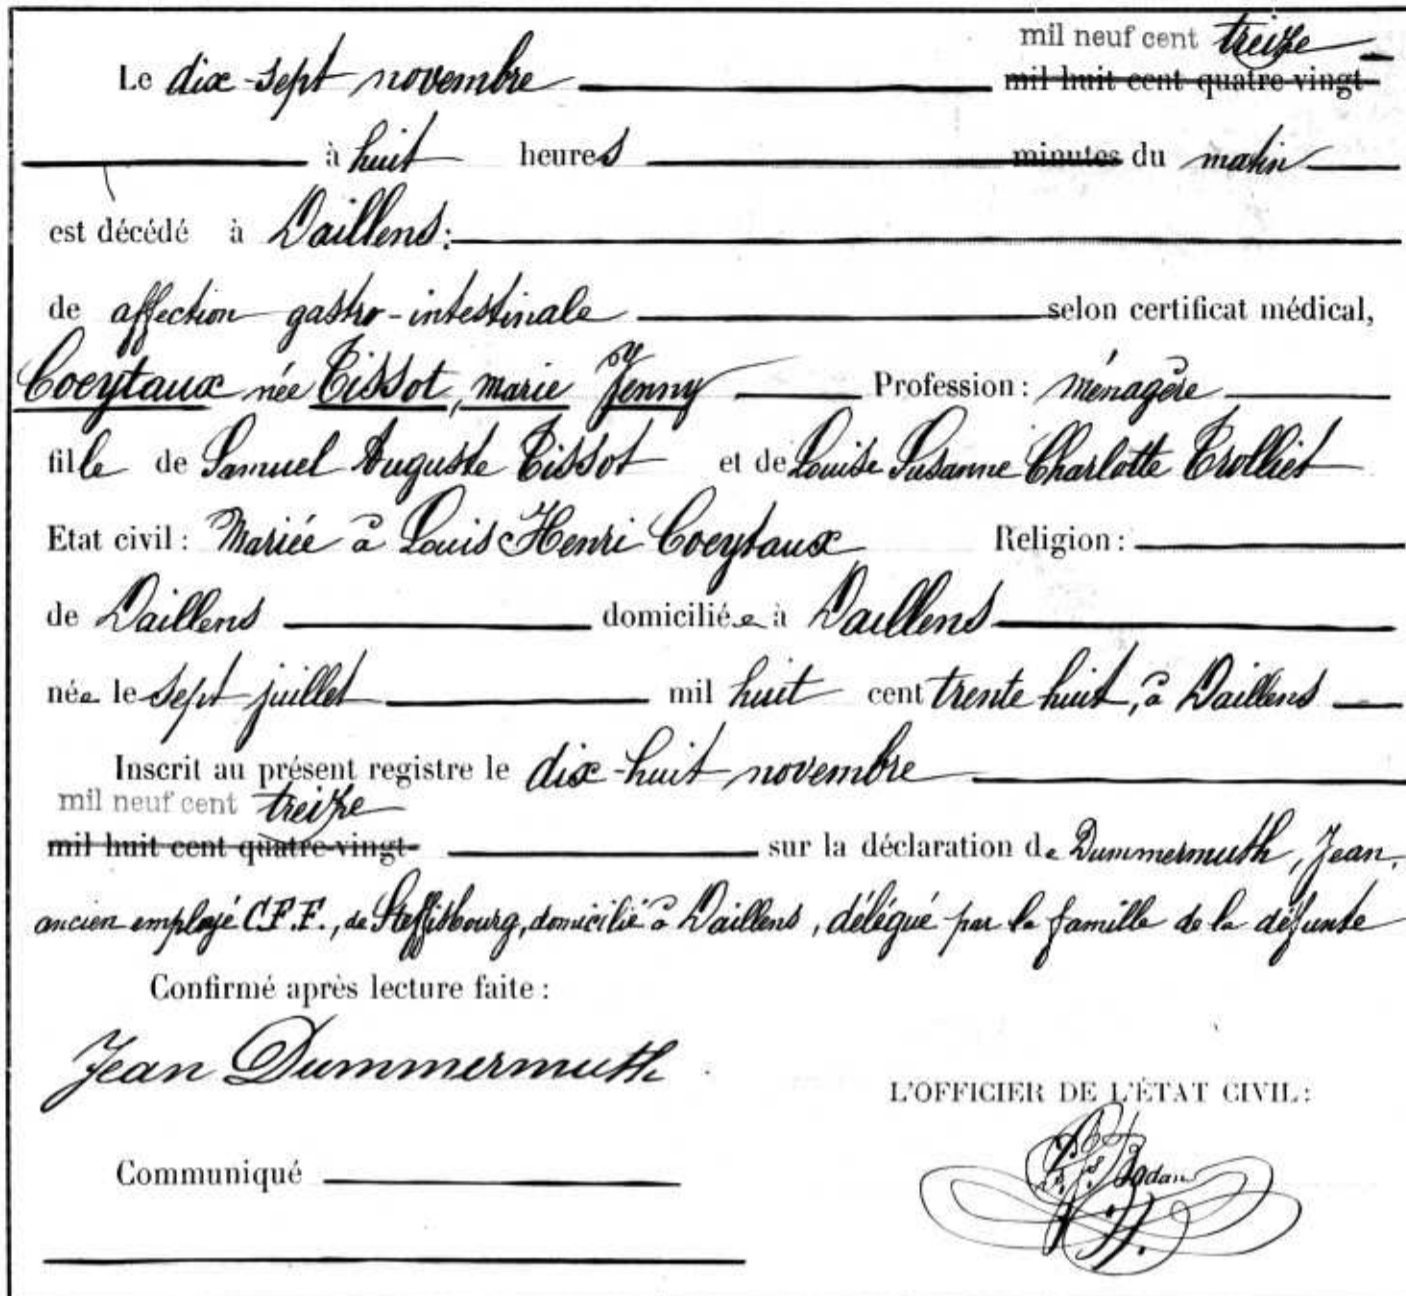 mil neuf cent treize
Le dix-sept novembre mil huit cent quatre-vingt-
à huit heures minutes du matin
est décédé à Daillens:
de affection gastro-intestinale selon certificat médical,
Coeytaux née Tissot, marie Jenny Profession: ménagère
fille de Samuel Auguste Tissot et de Louise Susanne Charlotte Trolliet
Etat civil: Mariée à Louis Henri Coeytaux Religion:
de Daillens domiciliée à Daillens
née le sept juillet mil huit cent trente huit, à Daillens
Inscrit au présent registre le dix-huit novembre
mil neuf cent treize
mil huit cent quatre-vingt- sur la déclaration de Dummermuth, Jean,
ancien employé C.F.F., de Steffisbourg, domicilié à Daillens, délégué par la famille de la défunte
Confirmé après lecture faite:
Jean Dummermuth
L'OFFICIER DE L'ÉTAT CIVIL:
Communiqué